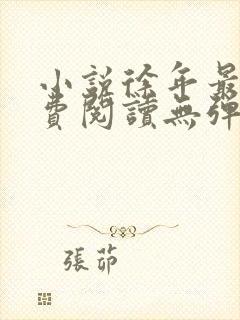 小説徐年最
費閱讀無彈
張茆